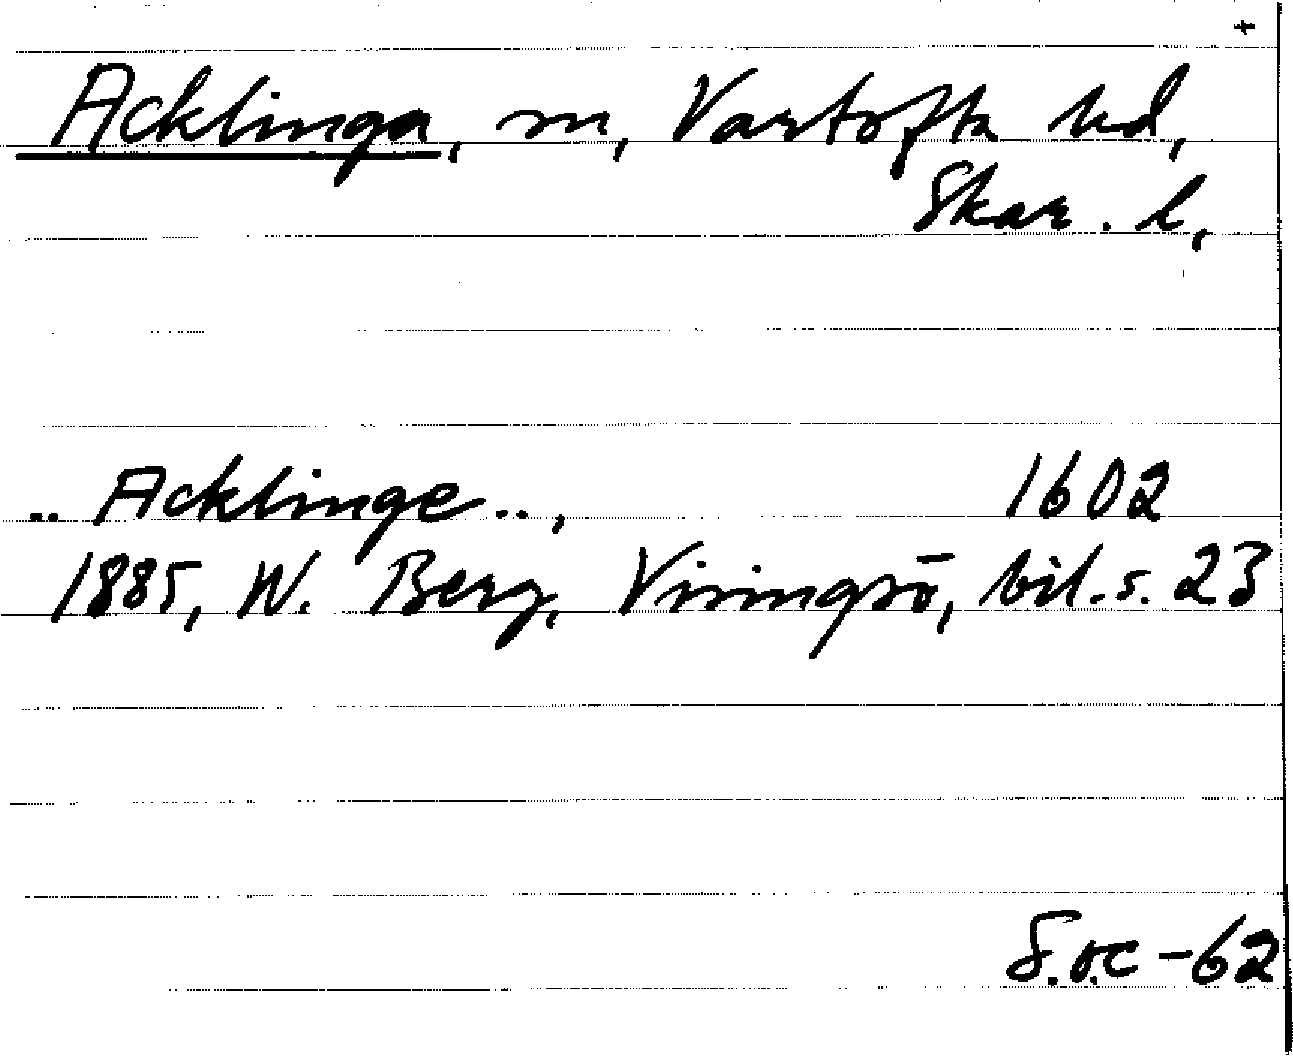 Acklinga, sn, Vartofta hd,
Skar. l,
.. Acklinge..,      1602
1885, W. Berg, Visingsö, bil. s. 23
S.o.C -62